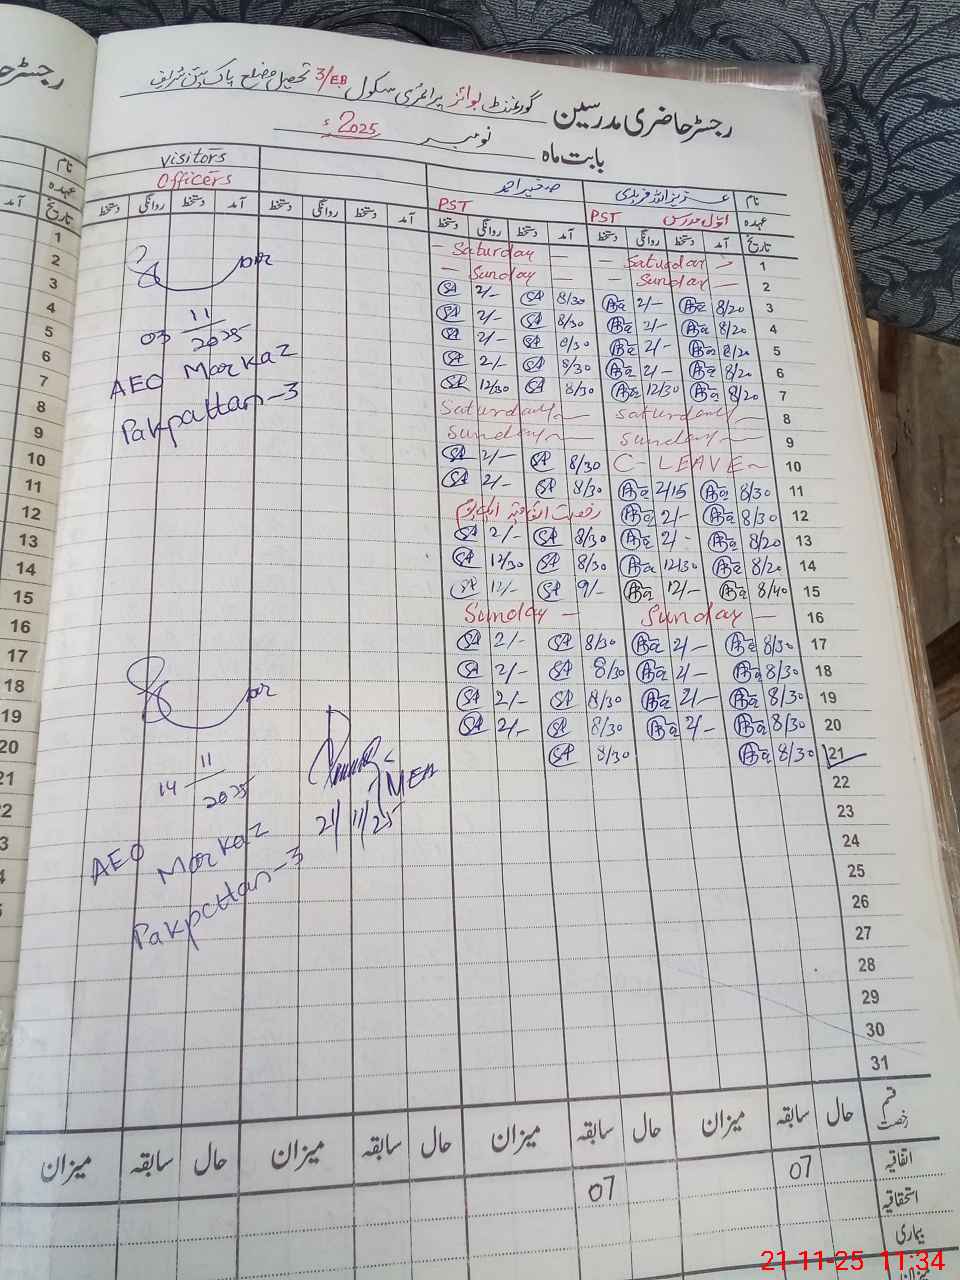 رجسٹر حاضری مدرسین گورنمنٹ بوائز پرائمری سکول 3/EB تحصیل و ضلع پاکپتن شریف
بابت ماہ نومبر 2025ء
نام عزیز اللہ فریدی صغیر احمد Visitors
عہدہ اول مدرس PST PST Officers
تاریخ آمد دستخط روانگی دستخط آمد دستخط روانگی دستخط آمد دستخط روانگی دستخط آمد دستخط روانگی دستخط
1 Saturday Saturday
2 Sunday Sunday
3 8/20 2/- 8/30 SA 2/- SA
4 8/20 2/- 8/30 SA 2/- SA
5 8/20 2/- 8/30 SA 2/- SA
6 8/20 2/- 8/30 SA 2/- SA
7 8/20 12/30 8/30 SA 12/30 SA
8 Saturday Saturday
9 Sunday Sunday
10 C-LEAVE 8/30 SA 2/- SA
11 8/30 2/15 8/30 SA 2/- SA
12 8/30 2/- رخصت اتفاقیہ ایک یوم
13 8/20 2/- 8/30 SA 2/- SA
14 8/20 12/30 8/30 SA 12/30 SA
15 8/40 12/- 9/- SA 12/- SA
16 Sunday Sunday
17 8/30 2/- 8/30 SA 2/- SA
18 8/30 2/- 8/30 SA 2/- SA
19 8/30 2/- 8/30 SA 2/- SA
20 8/30 2/- 8/30 SA 2/- SA
21 8/30 8/30 SA
22
23
24
25
26
27
28
29
30
31
03 11 2025
AEO Markaz
Pakpattan-3
14 11 2025
AEO Markaz
Pakpattan-3
MEA
21/11/25
قسم رخصت حال سابقہ میزان حال سابقہ میزان حال سابقہ میزان حال سابقہ میزان
اتفاقیہ 07 07
استحقاقیہ
بیماری
میزان
21-11-25 11:34